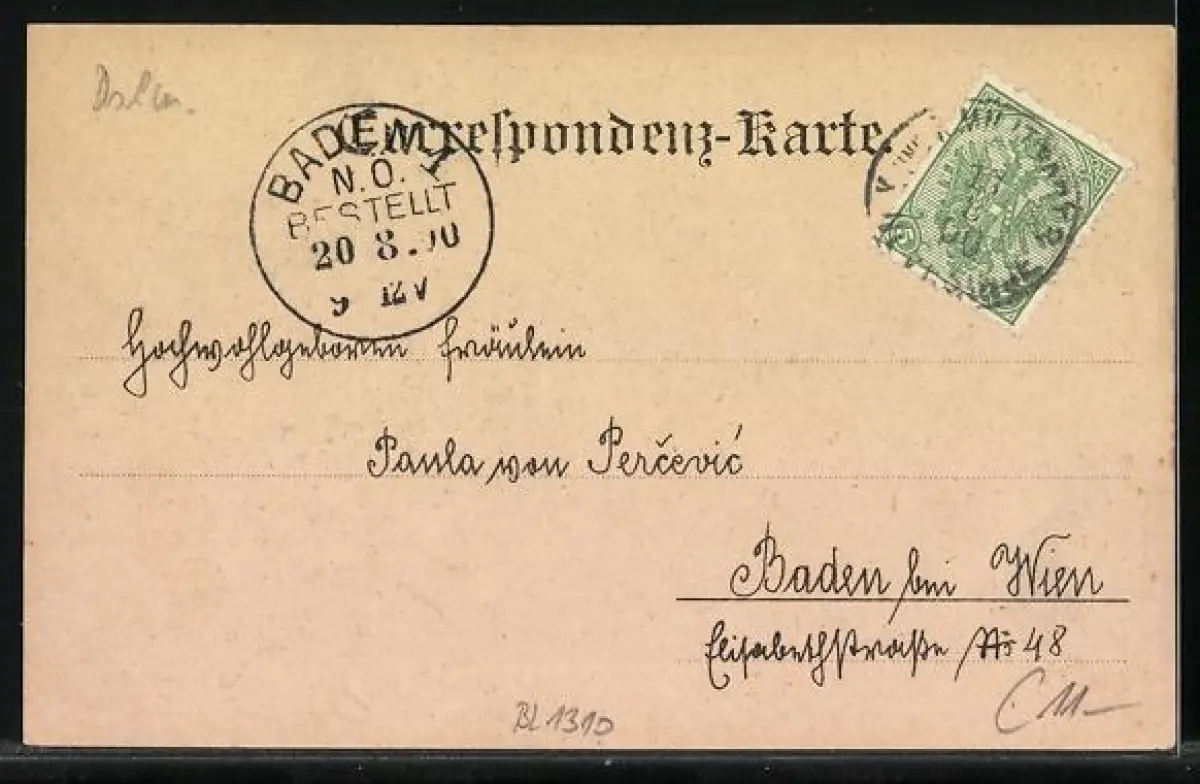 Correspondenz-Karte.
BADEN 1
N.Ö.
BESTELLT
20 8.00
9 12 V
5
00
Hochwohlgeboren Fräulein
Paula von Perčević
Baden bei Wien
Elisabethstraße Nr 48
BL1310